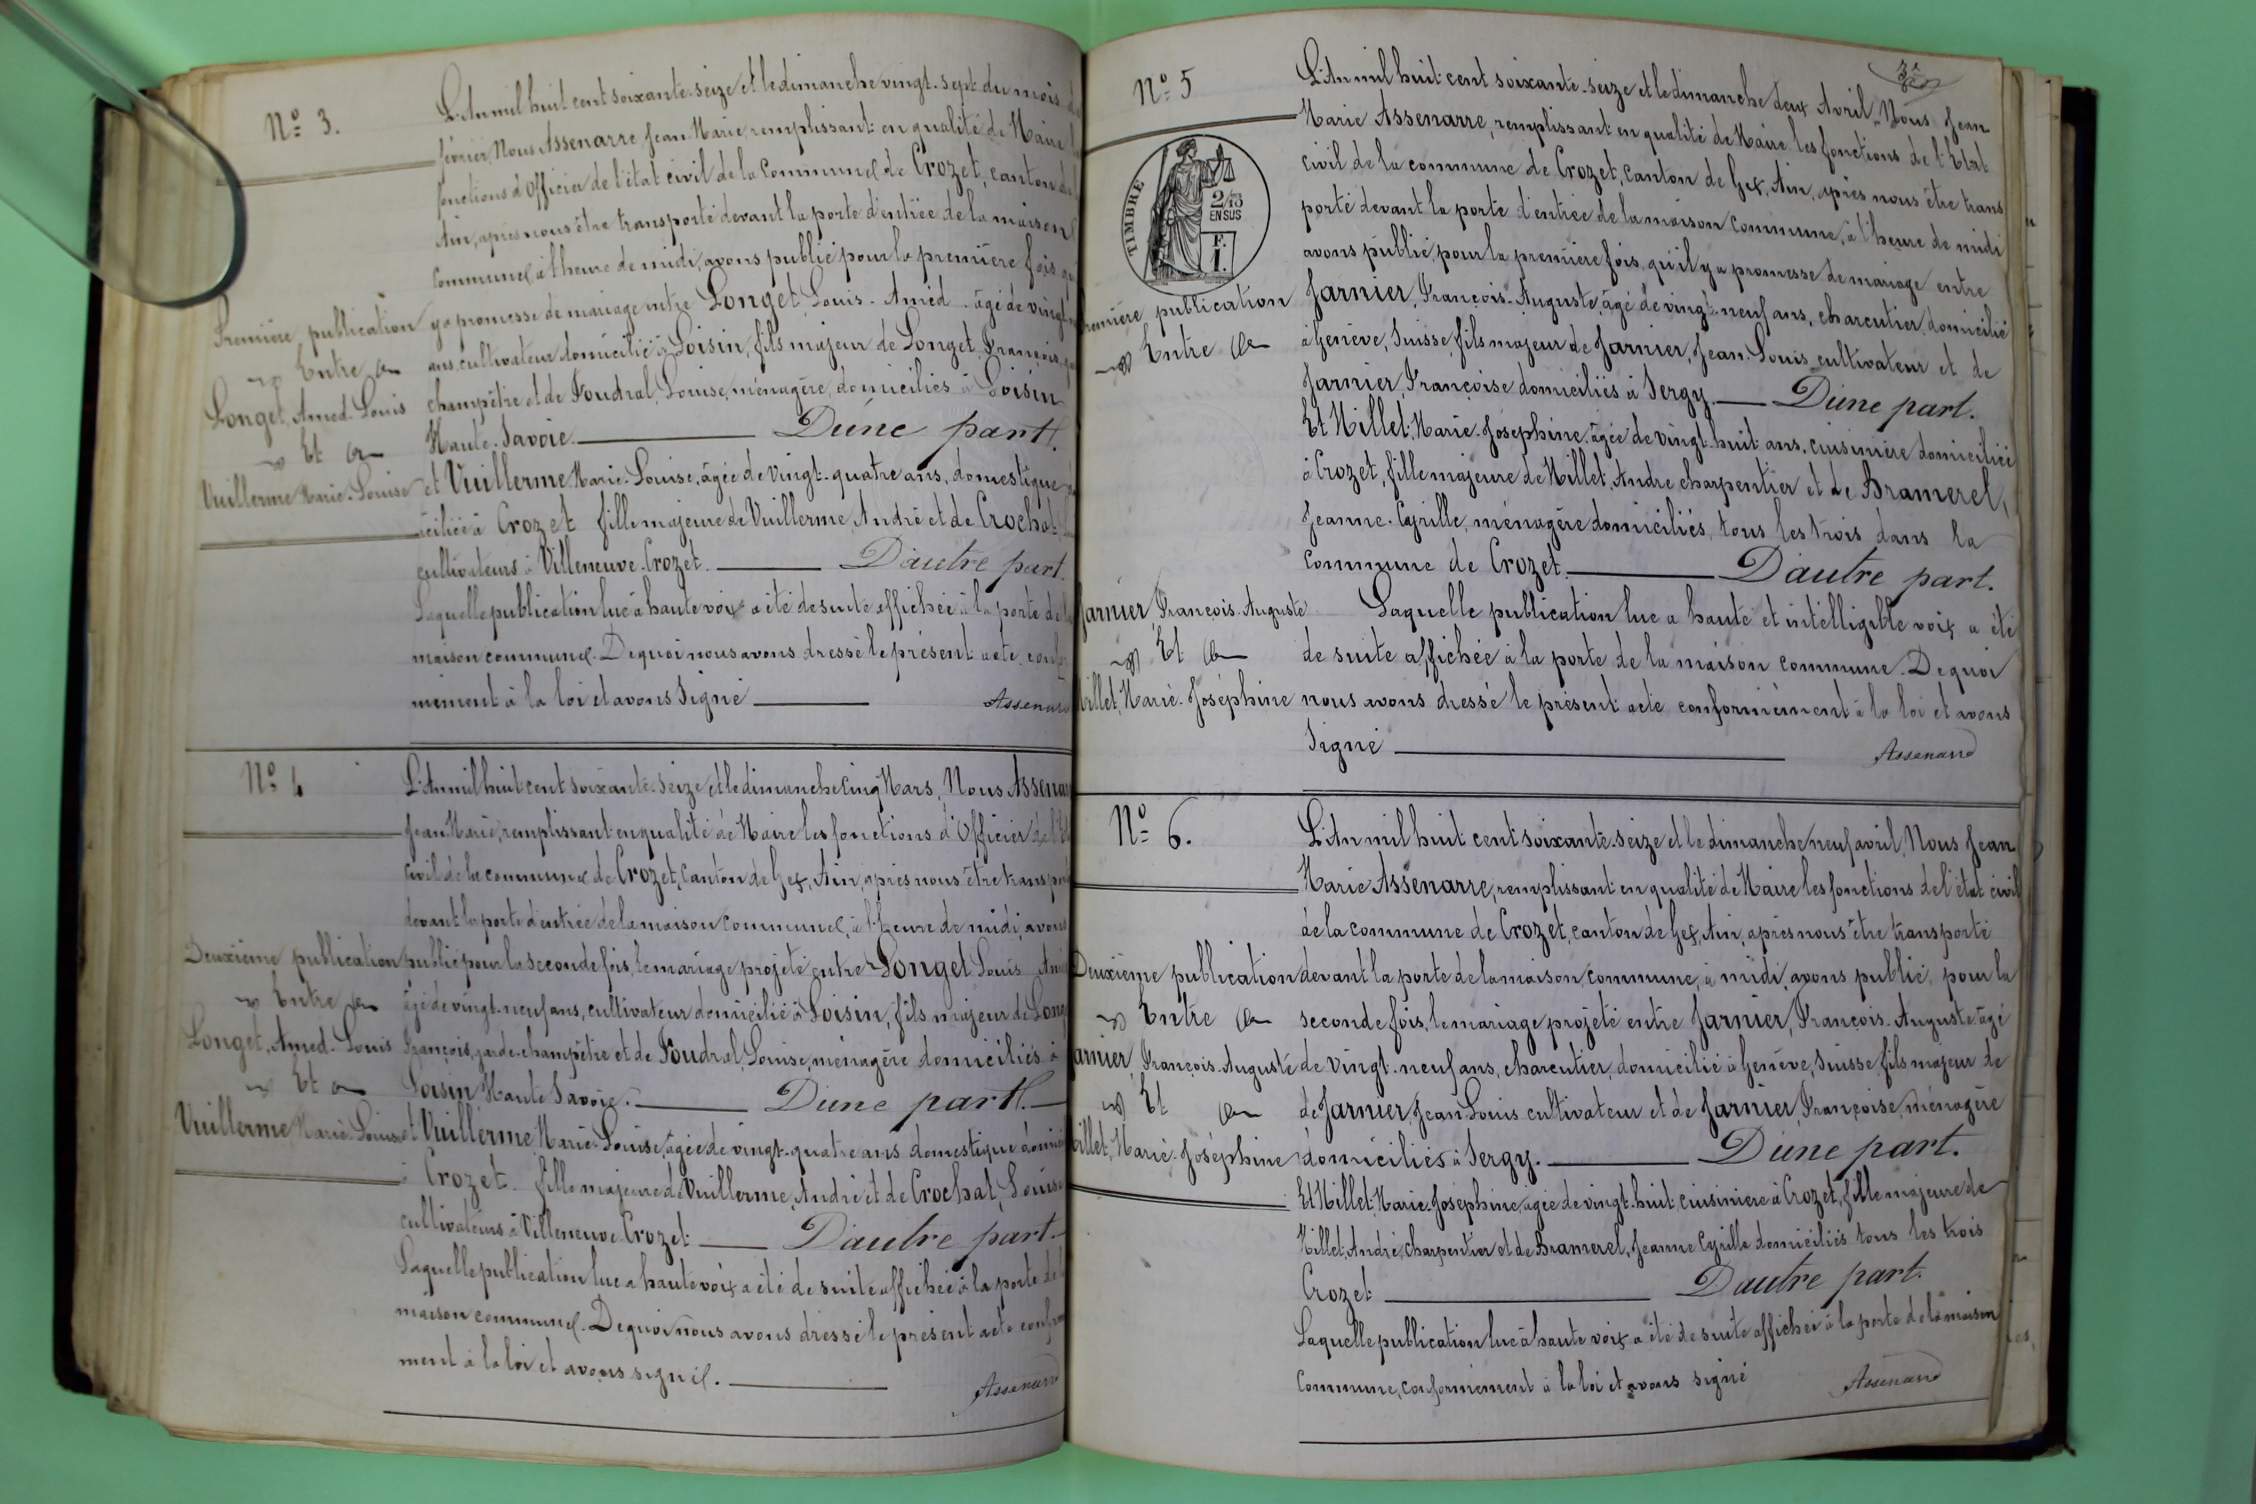 Nº 3.
L'An mil huit cent soixante-seize et le dimanche vingt-sept du mois de
février, Nous Assenarre Jean Marie, remplissant en qualité de Maire les
fonctions d'Officier de l'état civil de la Commune de Crozet, canton de
Ain, après nous être transporté devant la porte d'entrée de la maison
commune, à l'heure de midi, avons publié pour la première fois qu'
Première publication
Entre
Longet, Amed. Louis
Et
Vuillerme Marie-Louise
y a promesse de mariage entre Longet Louis-Améd. âgé de vingt
ans, cultivateur domicilié à Loisin, fils majeur de Longet, François,
champêtre et de Foudral, Louise, ménagère, domiciliés à Loisin
Haute-Savoie. D'une part.
et Vuillerme Marie-Louise, âgée de vingt-quatre ans, domestique
ciliée à Crozet fille majeure de Vuillerme, André et de Crochat
cultivateurs à Villeneuve-Crozet. D'autre part.
Laquelle publication lue à haute voix a été de suite affichée à la porte de la
maison commune. De quoi nous avons dressé le présent acte, confor
mément à la loi et avons signé
Assenarre
Nº 4
L'An mil huit cent soixante-seize et le dimanche cinq Mars, Nous Assenar
Jean Marie, remplissant en qualité de Maire les fonctions d'Officier de l'Et
civil de la commune de Crozet, Canton de Gex, Ain, après nous être transpor
devant la porte d'entrée de la maison commune, à l'heure de midi, avons
Deuxième publication
Entre
Longet, Amed. Louis
Et
Vuillerme Marie-Louise
publié pour la seconde fois, le mariage projeté entre Longet Louis Amé
âgé de vingt-neuf ans, cultivateur domicilié à Loisin, fils majeur de Long
François, garde-champêtre et de Foudral, Louise, ménagère domiciliés à
Loisin Haute Savoie. D'une part.
et Vuillerme Marie-Louise, âgée de vingt-quatre ans domestique domici
à Crozet. fille majeure de Vuillerme, André et de Crochat, Louise
cultivateurs à Villeneuve Crozet D'autre part.
Laquelle publication lue à haute voix a été de suite affichée à la porte de l
maison commune. De quoi nous avons dressé le présent acte conform
ment à la loi et avons signé.
Assenarre
3e
Nº 5
TIMBRE
2/10
EN SUS
F.
1.
L'An mil huit cent soixante-seize et le dimanche deux Avril. Nous Jean
Marie Assenarre, remplissant en qualité de Maire les fonctions de l'Etat
civil de la commune de Crozet, canton de Gex, Ain, après nous être trans
porté devant la porte d'entrée de la maison commune, à l'heure de midi
avons publié pour la première fois, qu'il y a promesse de mariage entre
remière publication
Entre
Jarnier, François-Auguste
Et
illet, Marie-Joséphine
Jarnier, François-Auguste, âgé de vingt-neuf ans, charcutier, domicilié
à Genève, Suisse, fils majeur de Jarnier, Jean-Louis, cultivateur et de
Jarnier, Françoise domiciliés à Sergy. D'une part.
Et Millet, Marie-Joséphine, âgée de vingt-huit ans, cuisinière domiciliée
à Crozet, fille majeure de Millet, André charpentier et de Bramerel,
Jeanne-Cyrille, ménagère domiciliés, tous les trois dans la
commune de Crozet. D'autre part.
Laquelle publication lue a haute et intelligible voix a été
de suite affichée à la porte de la maison commune. De quoi
nous avons dressé le présent acte conformément à la loi et avons
signé
Assenarre
Nº 6.
L'An mil huit cent soixante-seize et le dimanche neuf avril, Nous Jean
Marie Assenarre, remplissant en qualité de Maire les fonctions de l'état civil
de la commune de Crozet, canton de Gex, Ain, après nous être transporté
Deuxième publication
Entre
arnier, François-Auguste
Et
illet, Marie-Joséphine
devant la porte de la maison commune, à midi, avons publié, pour la
seconde fois, le mariage projeté entre Jarnier, François-Auguste âgé
de vingt-neuf ans, charcutier, domicilié à Genève, Suisse, fils majeur de
de Jarnier, Jean Louis cultivateur et de Jarnier, Françoise, ménagère
domiciliés à Sergy. D'une part.
Et Millet, Marie-Joséphine, âgée de vingt-huit, cuisinière à Crozet, fille majeure de
Millet, André, charpentier et de Bramerel, Jeanne Cyrille domiciliés tous les trois
Crozet D'autre part.
Laquelle publication lue à haute voix a été de suite affichée à la porte de la maison
commune, conformément à la loi et avons signé
Assenarre